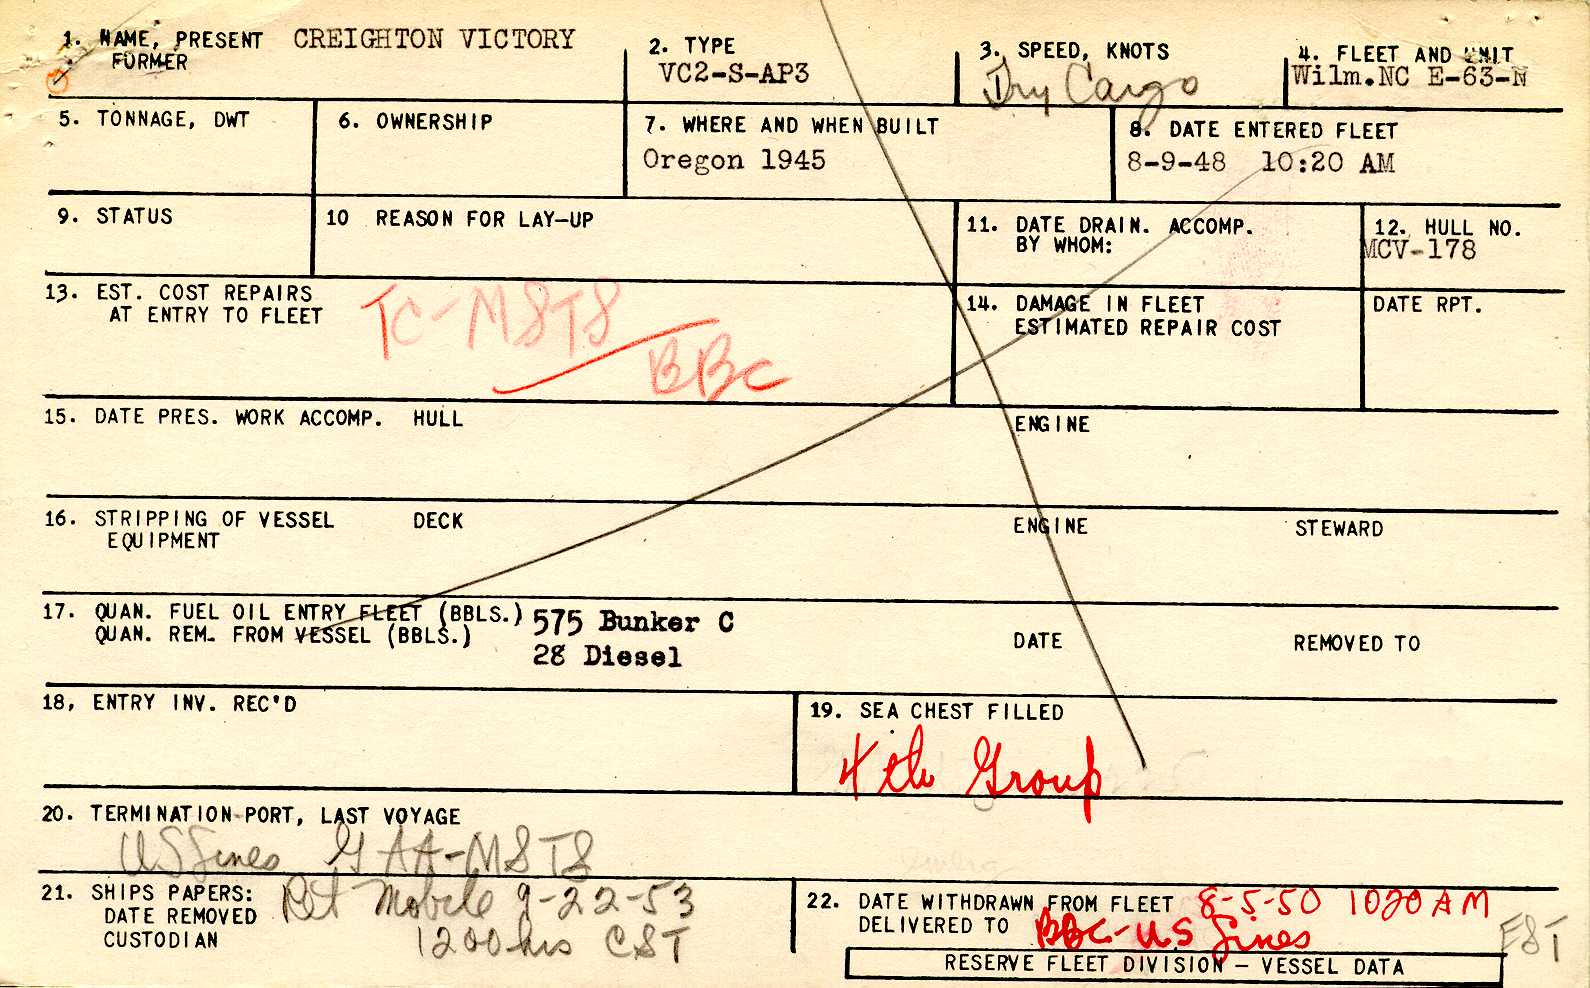 1. NAME, PRESENT CREIGHTON VICTORY
FORMER
2. TYPE
VC2-S-AP3
3. SPEED, KNOTS
Dry Cargo
4. FLEET AND UNIT
Wilm.NC E-63-N
5. TONNAGE, DWT
6. OWNERSHIP
7. WHERE AND WHEN BUILT
Oregon 1945
8. DATE ENTERED FLEET
8-9-48 10:20 AM
9. STATUS
10 REASON FOR LAY-UP
11. DATE DRAIN. ACCOMP.
BY WHOM:
12. HULL NO.
MCV-178
13. EST. COST REPAIRS
AT ENTRY TO FLEET
TC-MSTS
BBC
14. DAMAGE IN FLEET
ESTIMATED REPAIR COST
DATE RPT.
15. DATE PRES. WORK ACCOMP. HULL
ENGINE
16. STRIPPING OF VESSEL DECK
EQUIPMENT
ENGINE
STEWARD
17. QUAN. FUEL OIL ENTRY FLEET (BBLS.) 575 Bunker C
QUAN. REM. FROM VESSEL (BBLS.)
28 Diesel
DATE
REMOVED TO
18, ENTRY INV. REC'D
19. SEA CHEST FILLED
4th Group
20. TERMINATION PORT, LAST VOYAGE
US Lines GAA-MSTS
21. SHIPS PAPERS:
DATE REMOVED
CUSTODIAN
Ret Mobile 9-22-53
1200 hrs CST
22. DATE WITHDRAWN FROM FLEET 8-5-50 1020 AM
DELIVERED TO BBC-US Lines
EST
RESERVE FLEET DIVISION – VESSEL DATA